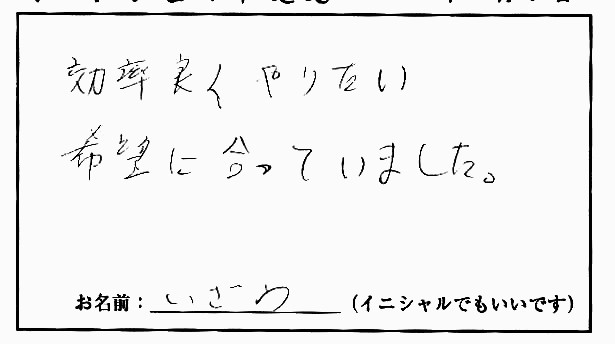 効率良くやりたい
希望に合っていました。
お名前：いざわ（イニシャルでもいいです）